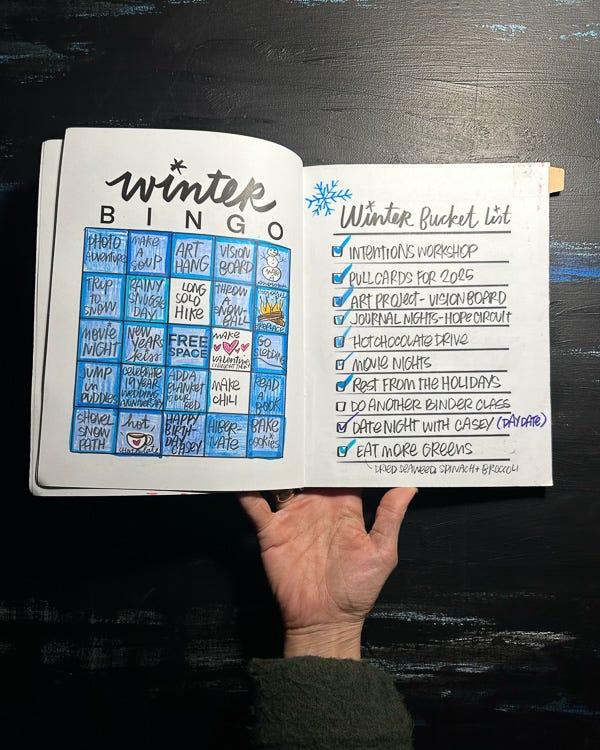 winter
BINGO
PHOTO
ADVENTURE
MAKE
A
SOUP
ART
HANG
VISION
BOARD
TRIP
TO
SNOW
RAINY
SNUGGLE
DAY
LONG
SOLO
HIKE
THROW
A
SNOW-
BALL
FIREPLACE
MOVIE
NIGHT
NEW
YEARS
kiss
FREE
SPACE
MAKE
VALENTINES
GO
SLEDDING
JUMP
IN
PUDDLES
CELEBRATE
19 YEAR
WEDDING
ANNIVERSARY
ADD A
BLANKET
TO THE
BED
MAKE
CHILI
READ
A
BOOK
SHOVEL
SNOW
PATH
hot
CHOCOLATE
HAPPY
BIRTH-
DAY
CASEY
HIBER-
NATE
BAKE
COOKIES
Winter Bucket List
INTENTIONS WORKSHOP
PULL CARDS FOR 2025
ART PROJECT - VISION BOARD
JOURNAL NIGHTS - HOPE CIRCUIT
HOT CHOCOLATE DRIVE
MOVIE NIGHTS
REST FROM THE HOLIDAYS
DO ANOTHER BINDER CLASS
DATE NIGHT WITH CASEY (DAY DATE)
EAT MORE GREENS
DRIED SEAWEED, SPINACH + BROCCOLI